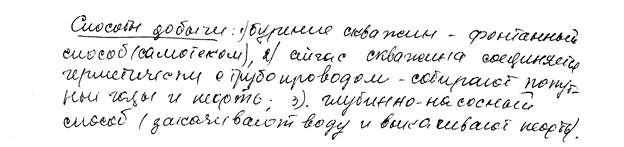 Способы добычи: 1) бурение скважин - фонтанный
способ (самотеком), 2) сейчас скважина соединяется
герметически с трубопроводом - собирают попут-
ные газы и нефть; 3). глубинно-насосный
способ (закачивают воду и выкачивают нефть).